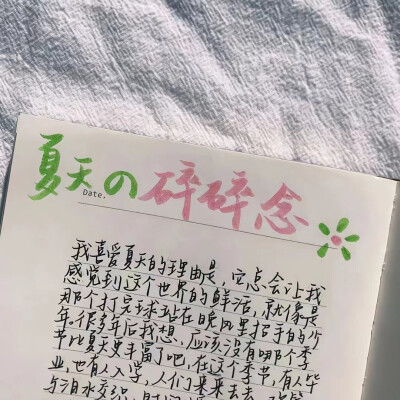 夏天の碎碎念
Date.
我喜爱夏天的理由是,它总会让我
感觉到这个世界的鲜活,就像是
那个打完球站在晚风里招手的少
年。很多年后我想,应该没有哪个季
节比夏天更丰富了吧,在这个季节,有人毕
业,也有人入学,人们来来去去,欢笑
与泪水交织,时间